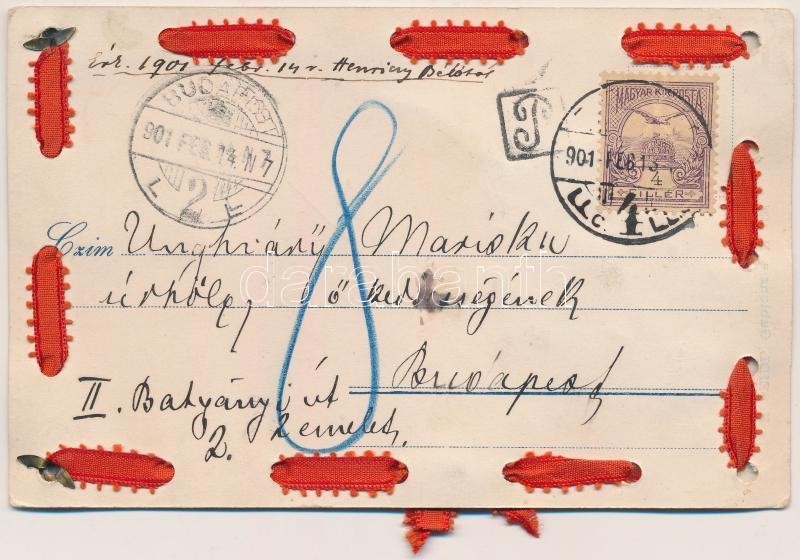 Érk. 1901 febr. 14 v. Henriczy Bélától
BUDAPEST
901 FEB. 14 N 7
2
P
MAGYAR KIR. POSTA
901 FEB. 13
4
FILLÉR
8
Czim Unghváry Mariska
úrhölgy ő kedvességének
Budapest
II. Batyányi út
2. I emelet.
darabanth